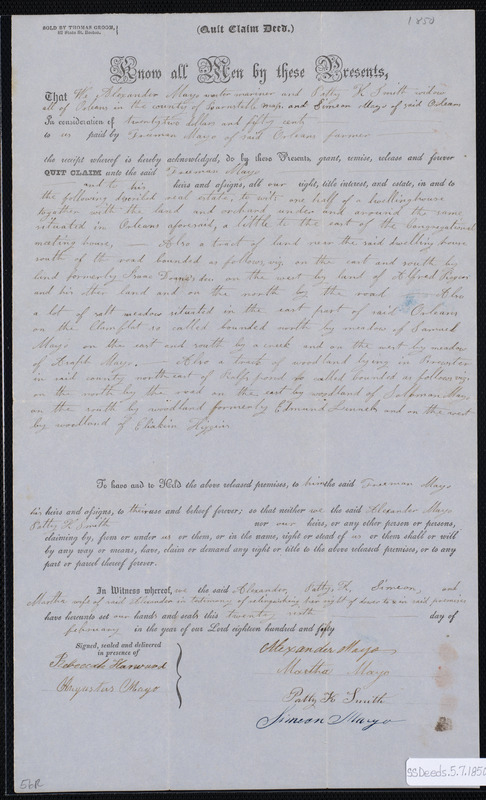 SOLD BY THOMAS GROOM,
82 State St. Boston.
(Quit Claim Deed.)
1850
Know all Men by these Presents,
That We Alexander Mayo master mariner and Patty K. Smith widow
all of Orleans in the county of Barnstable Mass. and Simeon Mayo of said Orleans
In consideration of twenty two dollars and fifty cents
to us paid by Freeman Mayo of said Orleans farmer
the receipt whereof is hereby acknowledged, do by these Presents, grant, remise, release and forever
QUIT CLAIM unto the said Freeman Mayo
and to his heirs and assigns, all our right, title interest, and estate, in and to
the following described real estate, to wit: one half of a dwelling house
together with the land and orchard under and around the same
situated in Orleans aforesaid, a little to the east of the Congregational
meeting house, — Also a tract of land near the said dwelling house
south of the road bounded as follows, viz. on the east and south by
land formerly Isaac on the west by land of Alfred
and his other land and on the north by the road — Also
a lot of salt meadow situated in the east part of said Orleans
on the so called bounded north by meadow of Samuel
Mayo on the east and south by a creek and on the west by meadow
of Mayo. — Also a tract of woodland lying in Brewster
in said county north east of pond so called bounded as follows, viz.
on the north by the road on the east by woodland of Mayo
on the south by woodland formerly Edmund and on the west
by woodland of Eliakim Higgins
To have and to Hold the above released premises, to him the said Freeman Mayo
his heirs and assigns, to their use and behoof forever; so that neither we the said Alexander Mayo
Patty K Smith nor our heirs, or any other person or persons,
claiming by, from or under us or them, or in the name, right or stead of us or them shall or will
by any way or means, have, claim or demand any right or title to the above released premises, or to any
part or parcel thereof forever.
In Witness whereof, we the said Alexander, Patty K, Simeon, and
Martha wife of said Alexander in testimony of relinquishing her right of dower in said premises
have hereunto set our hands and seals this twenty sixth day of
february in the year of our Lord eighteen hundred and fifty
Signed, sealed and delivered
in presence of
Rebecca Harwood
Augustus Mayo
Alexander Mayo
Martha Mayo
Patty K Smith
Simeon Mayo
SSDeeds.5.7.1850
56R